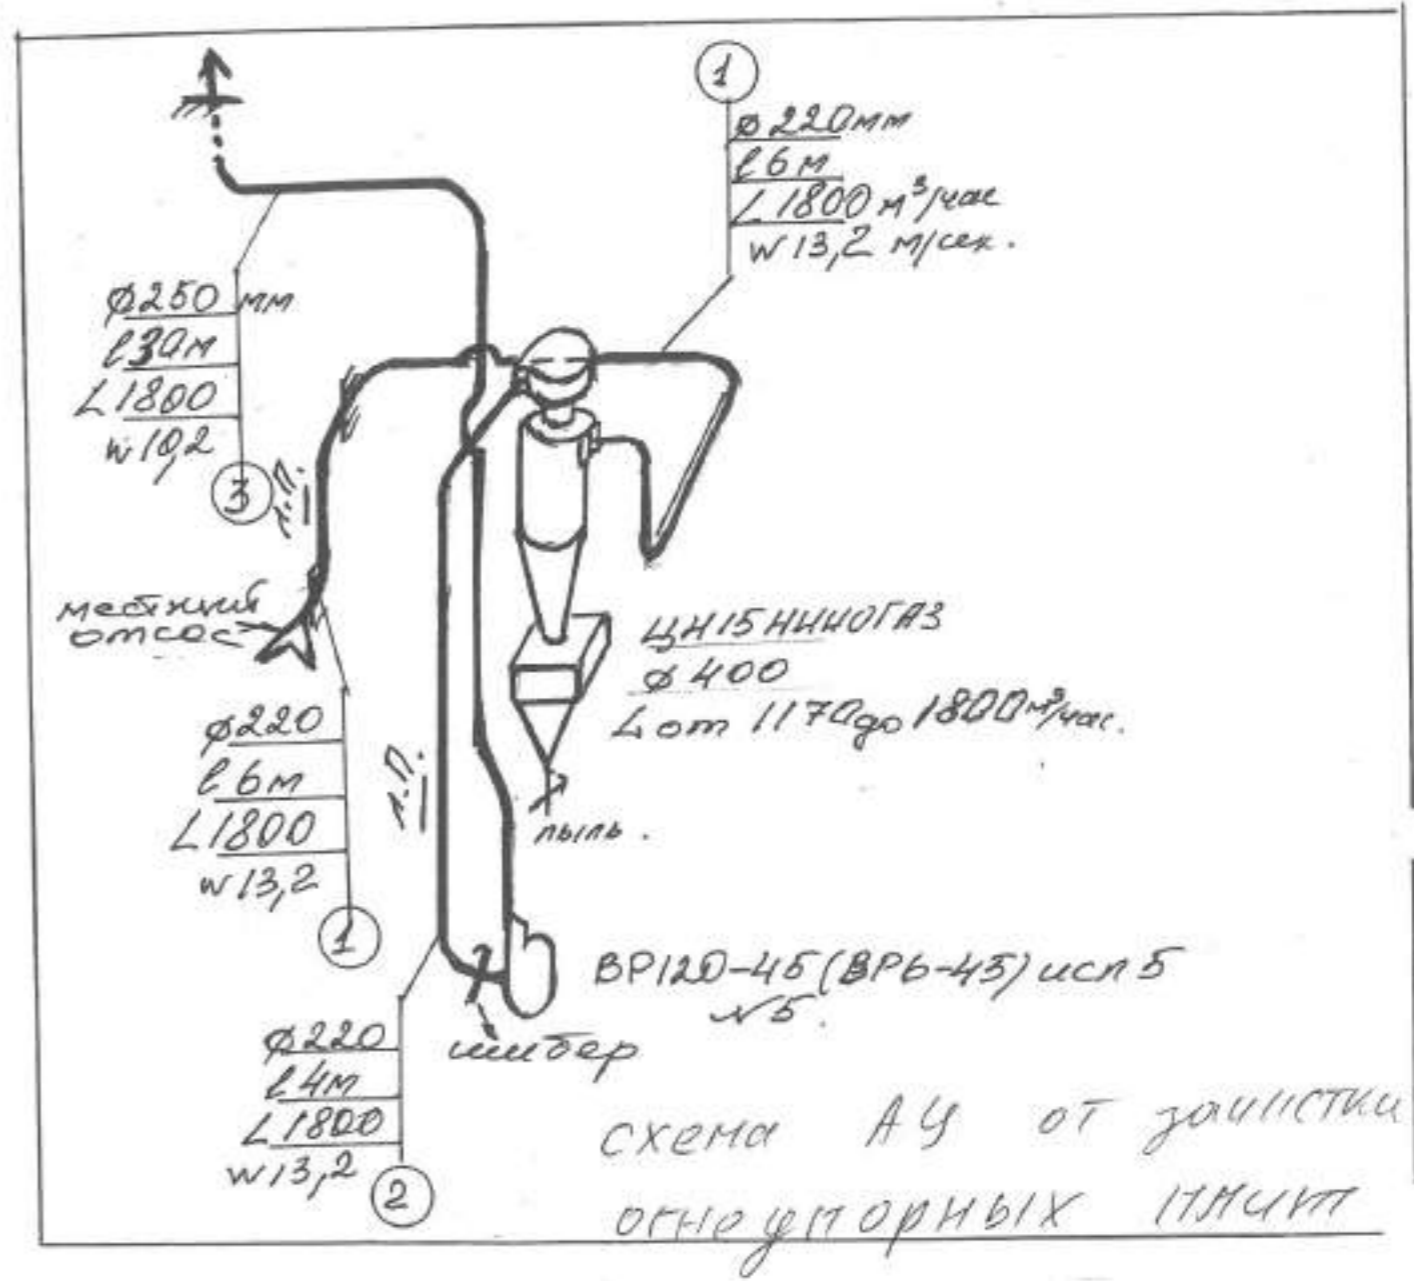 1
ø 220мм
l 6 м
L 1800 м³/час
w 13,2 м/сек.
ø250 мм
l 30м
L 1800
w 10,2
3
л.п.
местный
отсос
ø220
l 6м
L 1800
w 13,2
1
л.п.
ЦН15 НИИОГАЗ
ø 400
L от 1170 до 1800 м³/час.
пыль.
ВР120-45 (ВР6-45) исп 5
№5.
шибер
ø220
l 4м
L 1800
w 13,2
2
схема АУ от зачистки
огнеупорных плит